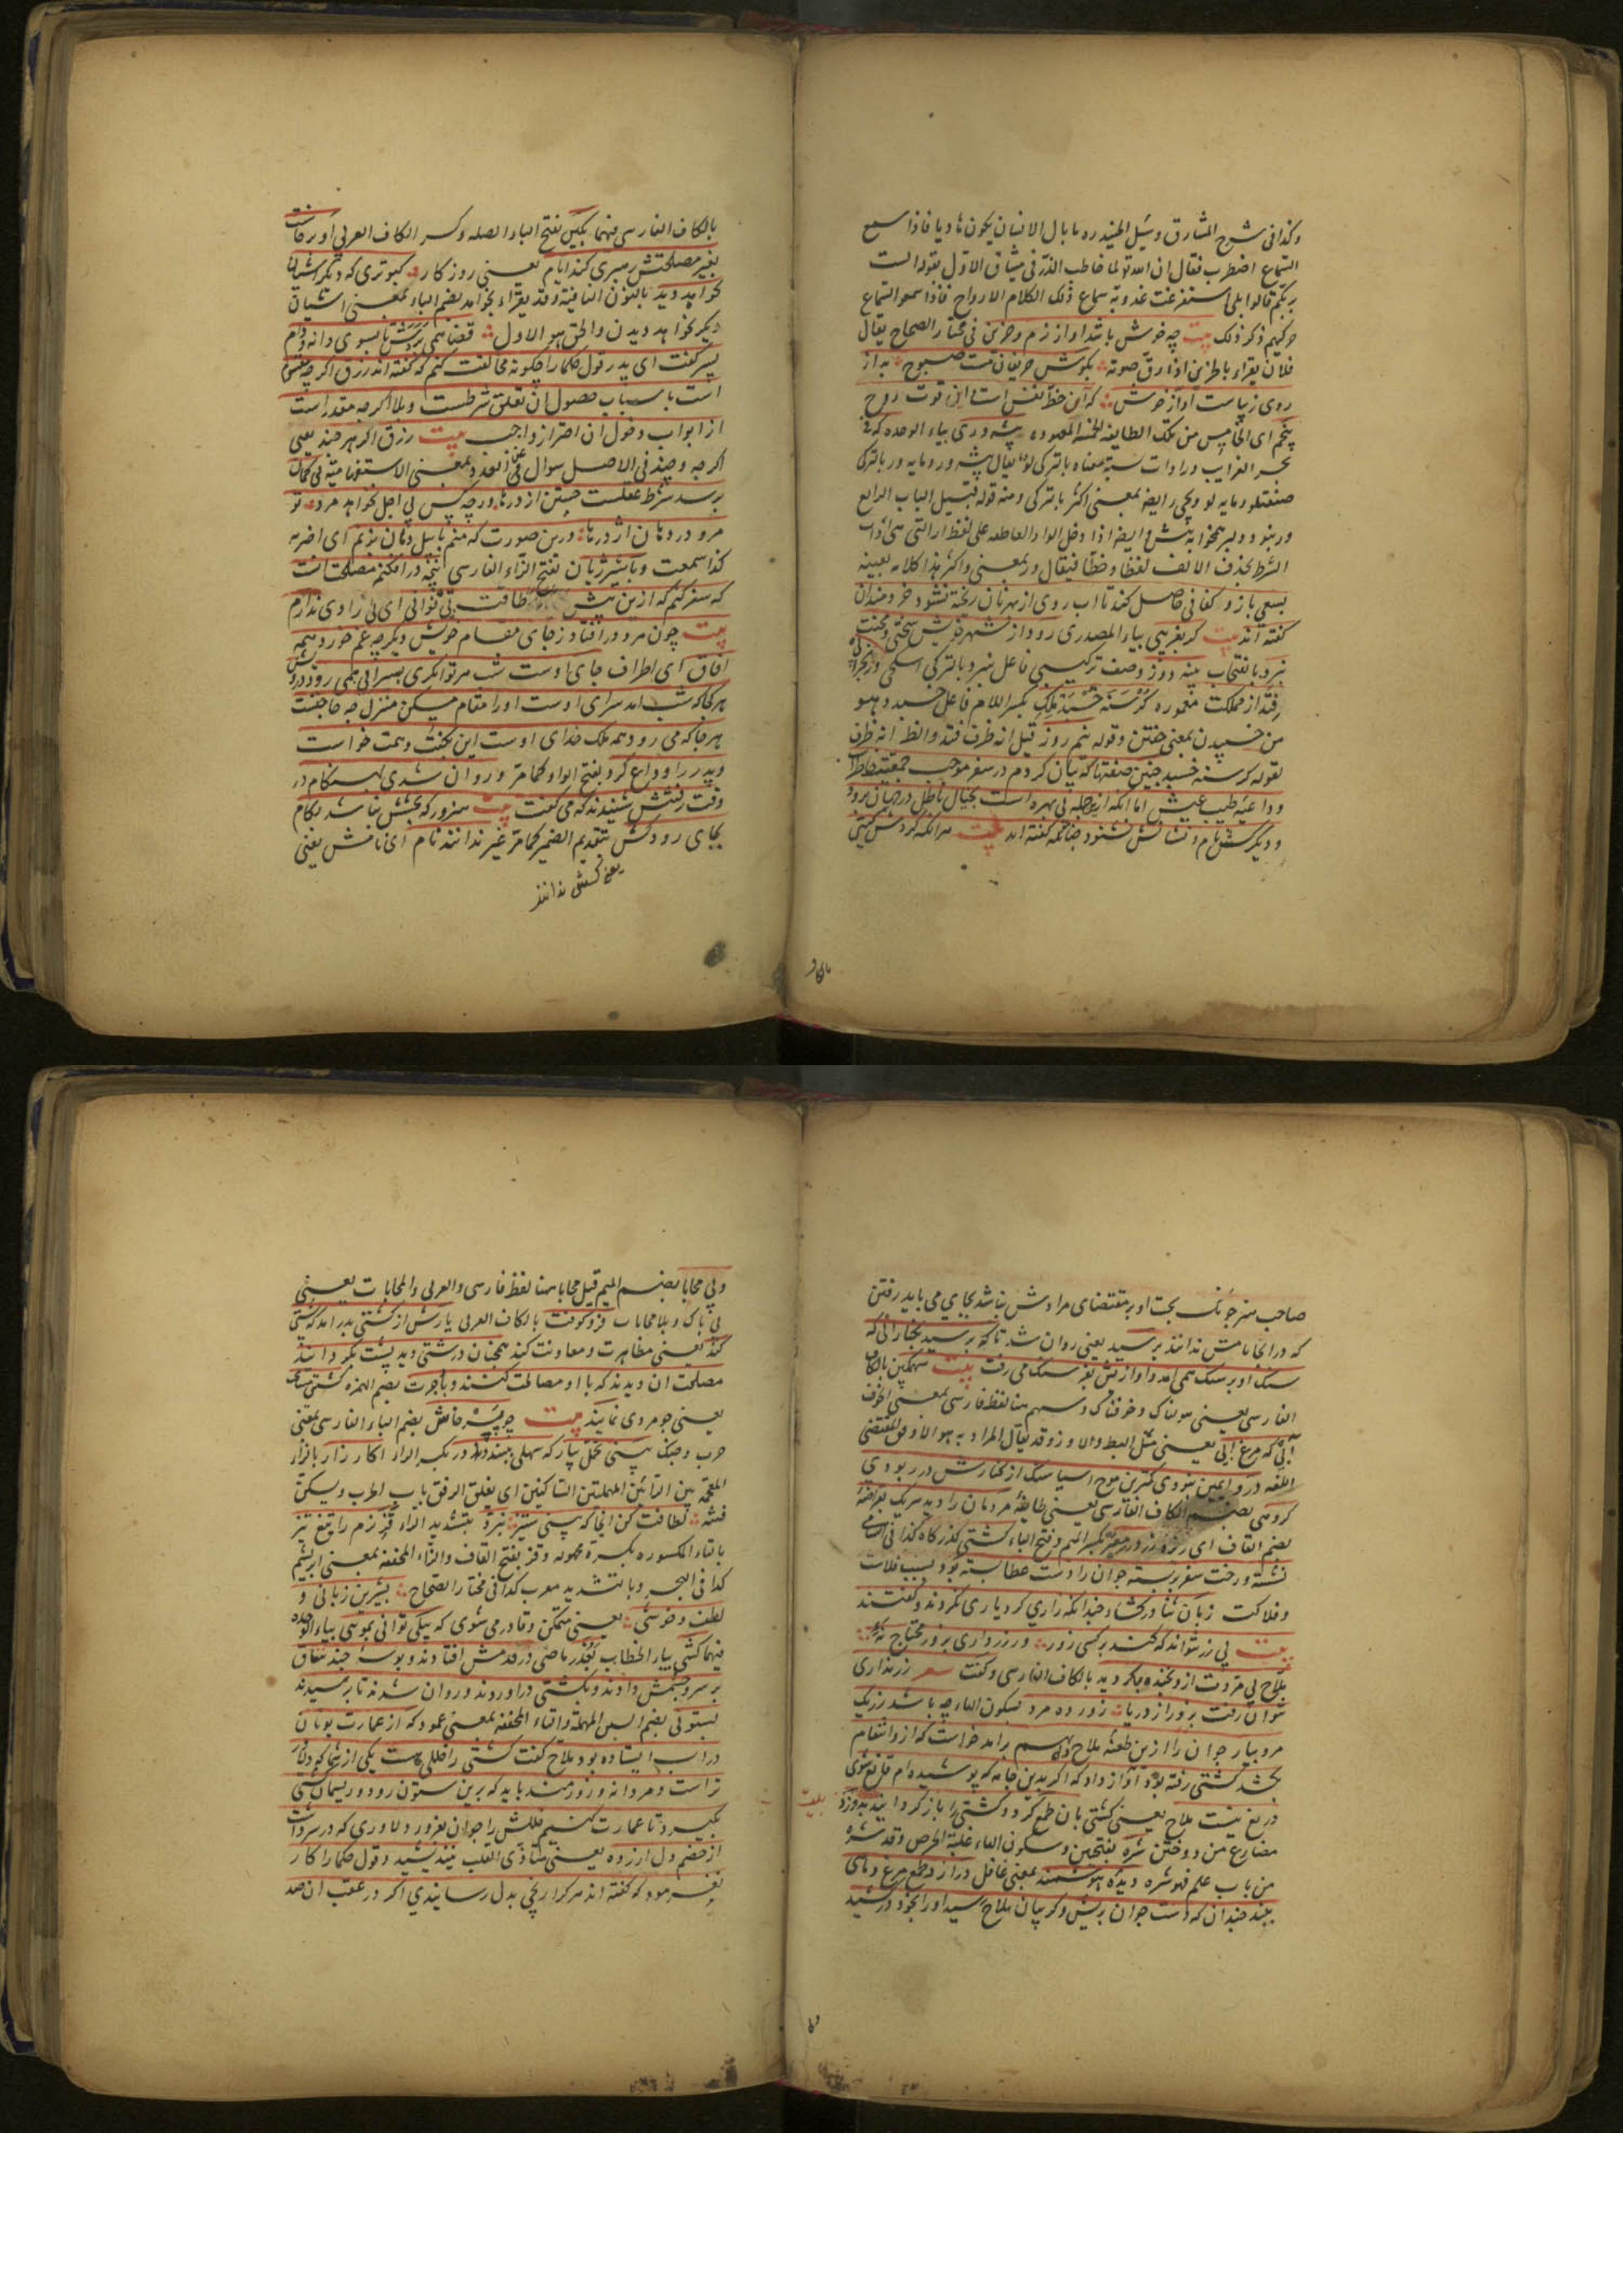 وكذا فی شرح المشارق وسئل الجنید ره ما بال الانسان یكون هادیا فاذا سمع
السماع اضطرب فقال ان الله تو لما خاطب الذر فی میثاق الاول بقوله الست
بربكم قالوا بلی استفرغت عذوبة سماع ذلك الكلام الارواح فاذا سمعوا السماع
حركهم ذكر ذلك بیت چه خوش باشد آواز نرم وحزین فی مختار الصحاح یقال
فلان یقراء بالحزین اذا رق صوته بكوش حریفان مست صبوح به از
روی زیباست آواز خوش كه آن حظ نفس است این قوت روح
پنجم ای الخامس من تلك الطایفه الخمسه المعهوده پیشه وری بیاء الوحده كه
بحر الغرایب
صنعتلو ومایه لو ویجی ور ایضا بمعنی اكثر باتركی ومنه قوله قبیل الباب الرابع
ایضا اذا دخل الواو العاطفه علی لفظ ار التی هی ادات
الشرط بحذف الالف لفظا وخطا فیقال ور بمعنی واكثر هذا كلامه بعینه
بسعی بازو كفافی حاصل كند تا آب روی از بهر نان ریخته نشود خردمندان
كفته اند بیت كر بغریبی بیاء المصدری رود از شهر خویش سختی ومحنت
نبرد پنبه دوز وصف تركیبی فاعل نبرد وبالتركی اسكیجی
فتد از مملكت كرسنه خسبد ملك بكسر اللام فاعل خسبد وهو
من خسبیدن بمعنی خفتن وقوله نیم روز قیل انه ظرف فتد والظاهر انه ظرف
لقوله كرسنه خسبد چنین صفتها كه بیان كردم در سفر موجب جمعیت خاطر
وداعیه طیب عیش اما آنكه ازین جمله بی بهره است بخیال باطل در جهان برود
ودیكر كسش نام ونشانش نشنود چنانچه كفته اند بیت هر آنكه كردش كیتی
بالكاف
بالكاف الفارسی فیهما بكین بفتح الباء الصله وكسر الكاف العربی او برخاست
بغیر مصلحتش رهبری كند ایام یعنی روزكار كبوتری كه دیكر آشیان
نخواهد دید بالنون النافیة وقد یقراء بخواهد بضم الباء بمعنی آشیان
دیكر خواهد دیدن والحق هو الاول قضا همی بردش تا بسوی دانه ودام
پسر كفت ای پدر قول حكما را چكونه مخالفت كنم كه كفته اند رزق اكر چه مقسوم
است باسباب حصول آن تعلق شرطست وبلا اكر چه مقدر است
از ابواب دخول آن احتراز واجب بیت رزق اكر هر چند یعنی
اكر چه وچند فی الاصل سوال عن العدد بمعنی الاستفهامیة بی كمان
برسد شرط عقلست جستن از درها ورچه كس بی اجل نخواهد مرد تو
مرو در دهان اژدرها درین صورت كه منم با پیل دمان بزنم ای اضرب
كذا سمعت وبا شیر ژیان بفتح الزاء الفارسی پنجه درافكنم مصلحت آنست
كه سفر كنم كه ازین بیش طاقت بی نوائی ای بی زادی ندارم
بیت چون مرد در افتاد ز جای مقام خویش دیكر چه غم خورد همه
آفاق ای اطراف جای اوست شب هر توانكری بسرایی همی رود درویش
هر كجا كه شب آمد سرای اوست او را مقام مسكن منزل چه حاجتست
هر جا كه می رود همه ملك خدای اوست این بكفت وهمت خواست
وپدر را وداع كرد بفتح الواو كما مر وروان شدی بهنكام در
وقت رفتنش شنیدند كه می كفت بیت هنرور كه بختش نباشد بكام
بجای رود كش بتقدیم الضمیر كما مر غیر ندانند نام ای نامش یعنی
یعنی كسش ندانند
صاحب هنر چون بخت او بر مقتضای مرادش نباشد بجای می باید رفتن
كه در آنجا نامش ندانند برسید یعنی روان شد تا كه برسید بكنار آبی كه
سنك او بر سنك همی آمد وآوازش بفرسنك می رفت بیت سهمكین بالكاف
الفارسی یعنی هولناك وخوفناك وسهم هنا لفظ فارسی بمعنی الخوف
آبی كه مرغ آبی یعنی مثل البط والاوز وقد یقال المراد به هو الاوفق لمقتضی
اللغه درو ایمن نبودی كمترین موج آسیا سنك از كنارش در ربودی
كروهی بضم الكاف الفارسی یعنی طایفه مردمان را دید هر یك بقراضه
بضم القاف ای ریزه زر در معبر بكسر المیم وفتح الباء كشتی كذركاه كذا فی
نشسته ورخت سفر بربسته جوان را دست عطا بسته بود بسبب فلاكت
وفلاكت زبان ثنا بر كشاد چندانكه زاری كرد یاری نكردند وكفتند
بیت بی زر نتواند كه كند بر كسی زور ور زر داری بزور محتاج نه
ملاح بی مروت ازو بخنده بكردید بالكاف الفارسی وكفت شعر زر نداری
نتوان رفت بزور از دریا زور ده مرد بسكون الهاء چه باشد زر یك
مرد بیار جوان را ازین طعنه ملاح دل بهم برآمد خواست كه ازو انتقام
بكشد كشتی رفته بود آواز داد كه اكر بدین جامه كه پوشیده ام قانع شوی
دریغ نیست ملاح یعنی كشتی بان طمع كرد وكشتی را باز كردانید بیت بدوزد
مضارع من دوختن شره بفتحتین وسكون الهاء غلبة الحرص وقد شره
من باب علم فهو شره دیده هوشمند بمعنی عاقل درآرد طمع مرغ وماهی
ببند چندان كه دست جوان بریش وكریبان ملاح رسید او را بخود دركشید
وبی محابا بضم المیم قیل محابا هنا لفظ فارسی والعربی والمحابات یعنی
بی باك وبلا محابات فرو كوفت بالكاف العربی یارش از كشتی بدر آمد كه پشتی
كند یعنی مظاهرت ومعاونت كند همچنان درشتی دید پشت بكردانید
مصلحت آن دیدند كه با او مصالحت كنند وباجرت بضم الهمزه كشتی مسامحت
یعنی جوانمردی نمایند بیت چو پرخاش بضم الباء الفارسی بمعنی
حرب وجنك بینی تحمل بیار كه سهلی ببندد در كارزار بالزاء
المعجمه بین الرائین المهملتین الساكنین ای یغلق الرفق باب الحرب ویسكن
فتنه لطافت كن آنجا كه بینی ستیز نبرد بتشدید الراء قز نرم را تیغ تیز
بالتاء المكسوره بكسرة مجهوله وقز بفتح القاف والزاء المخففه بمعنی ابریشم
كذا فی البحر وبالتشدید معرب كذا فی مختار الصحاح بشیرین زبانی و
لطف وخوشی یعنی متمكن وقادر می شوی كه پیلی توانی بمویی بیاء الوحده
فیهما كشی بیاء الخطاب بعذر ماضی در قدمش افتادند وبوسه چند بنفاق
بر سر وچشمش دادند وبكشتی درآوردند وروان شدند تا برسیدند
بستونی بضم السین المهملة والتاء المخففه بمعنی عمود كه از عمارت یونان
در آب ایستاده بود ملاح كفت كشتی را خللی هست یكی از شما كه دلاور
تر است ومردانه وزورمند باید كه برین ستون رود وریسمان كشتی
بكیرد تا عمارت كنیم خللش را جوان بغرور دلاوری كه در سر داشت
از خصم دل آزرده یعنی متأذی القلب نیندیشید وقول حكما را كار
نفرمود كه كفته اند هر كرا رنجی بدل رسانیدی اكر در عقب آن صد